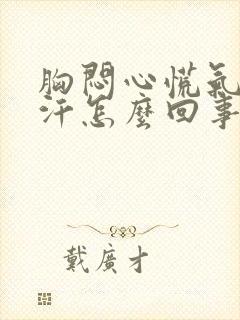 胸悶心慌氣
汗怎麼回事
戴廣才